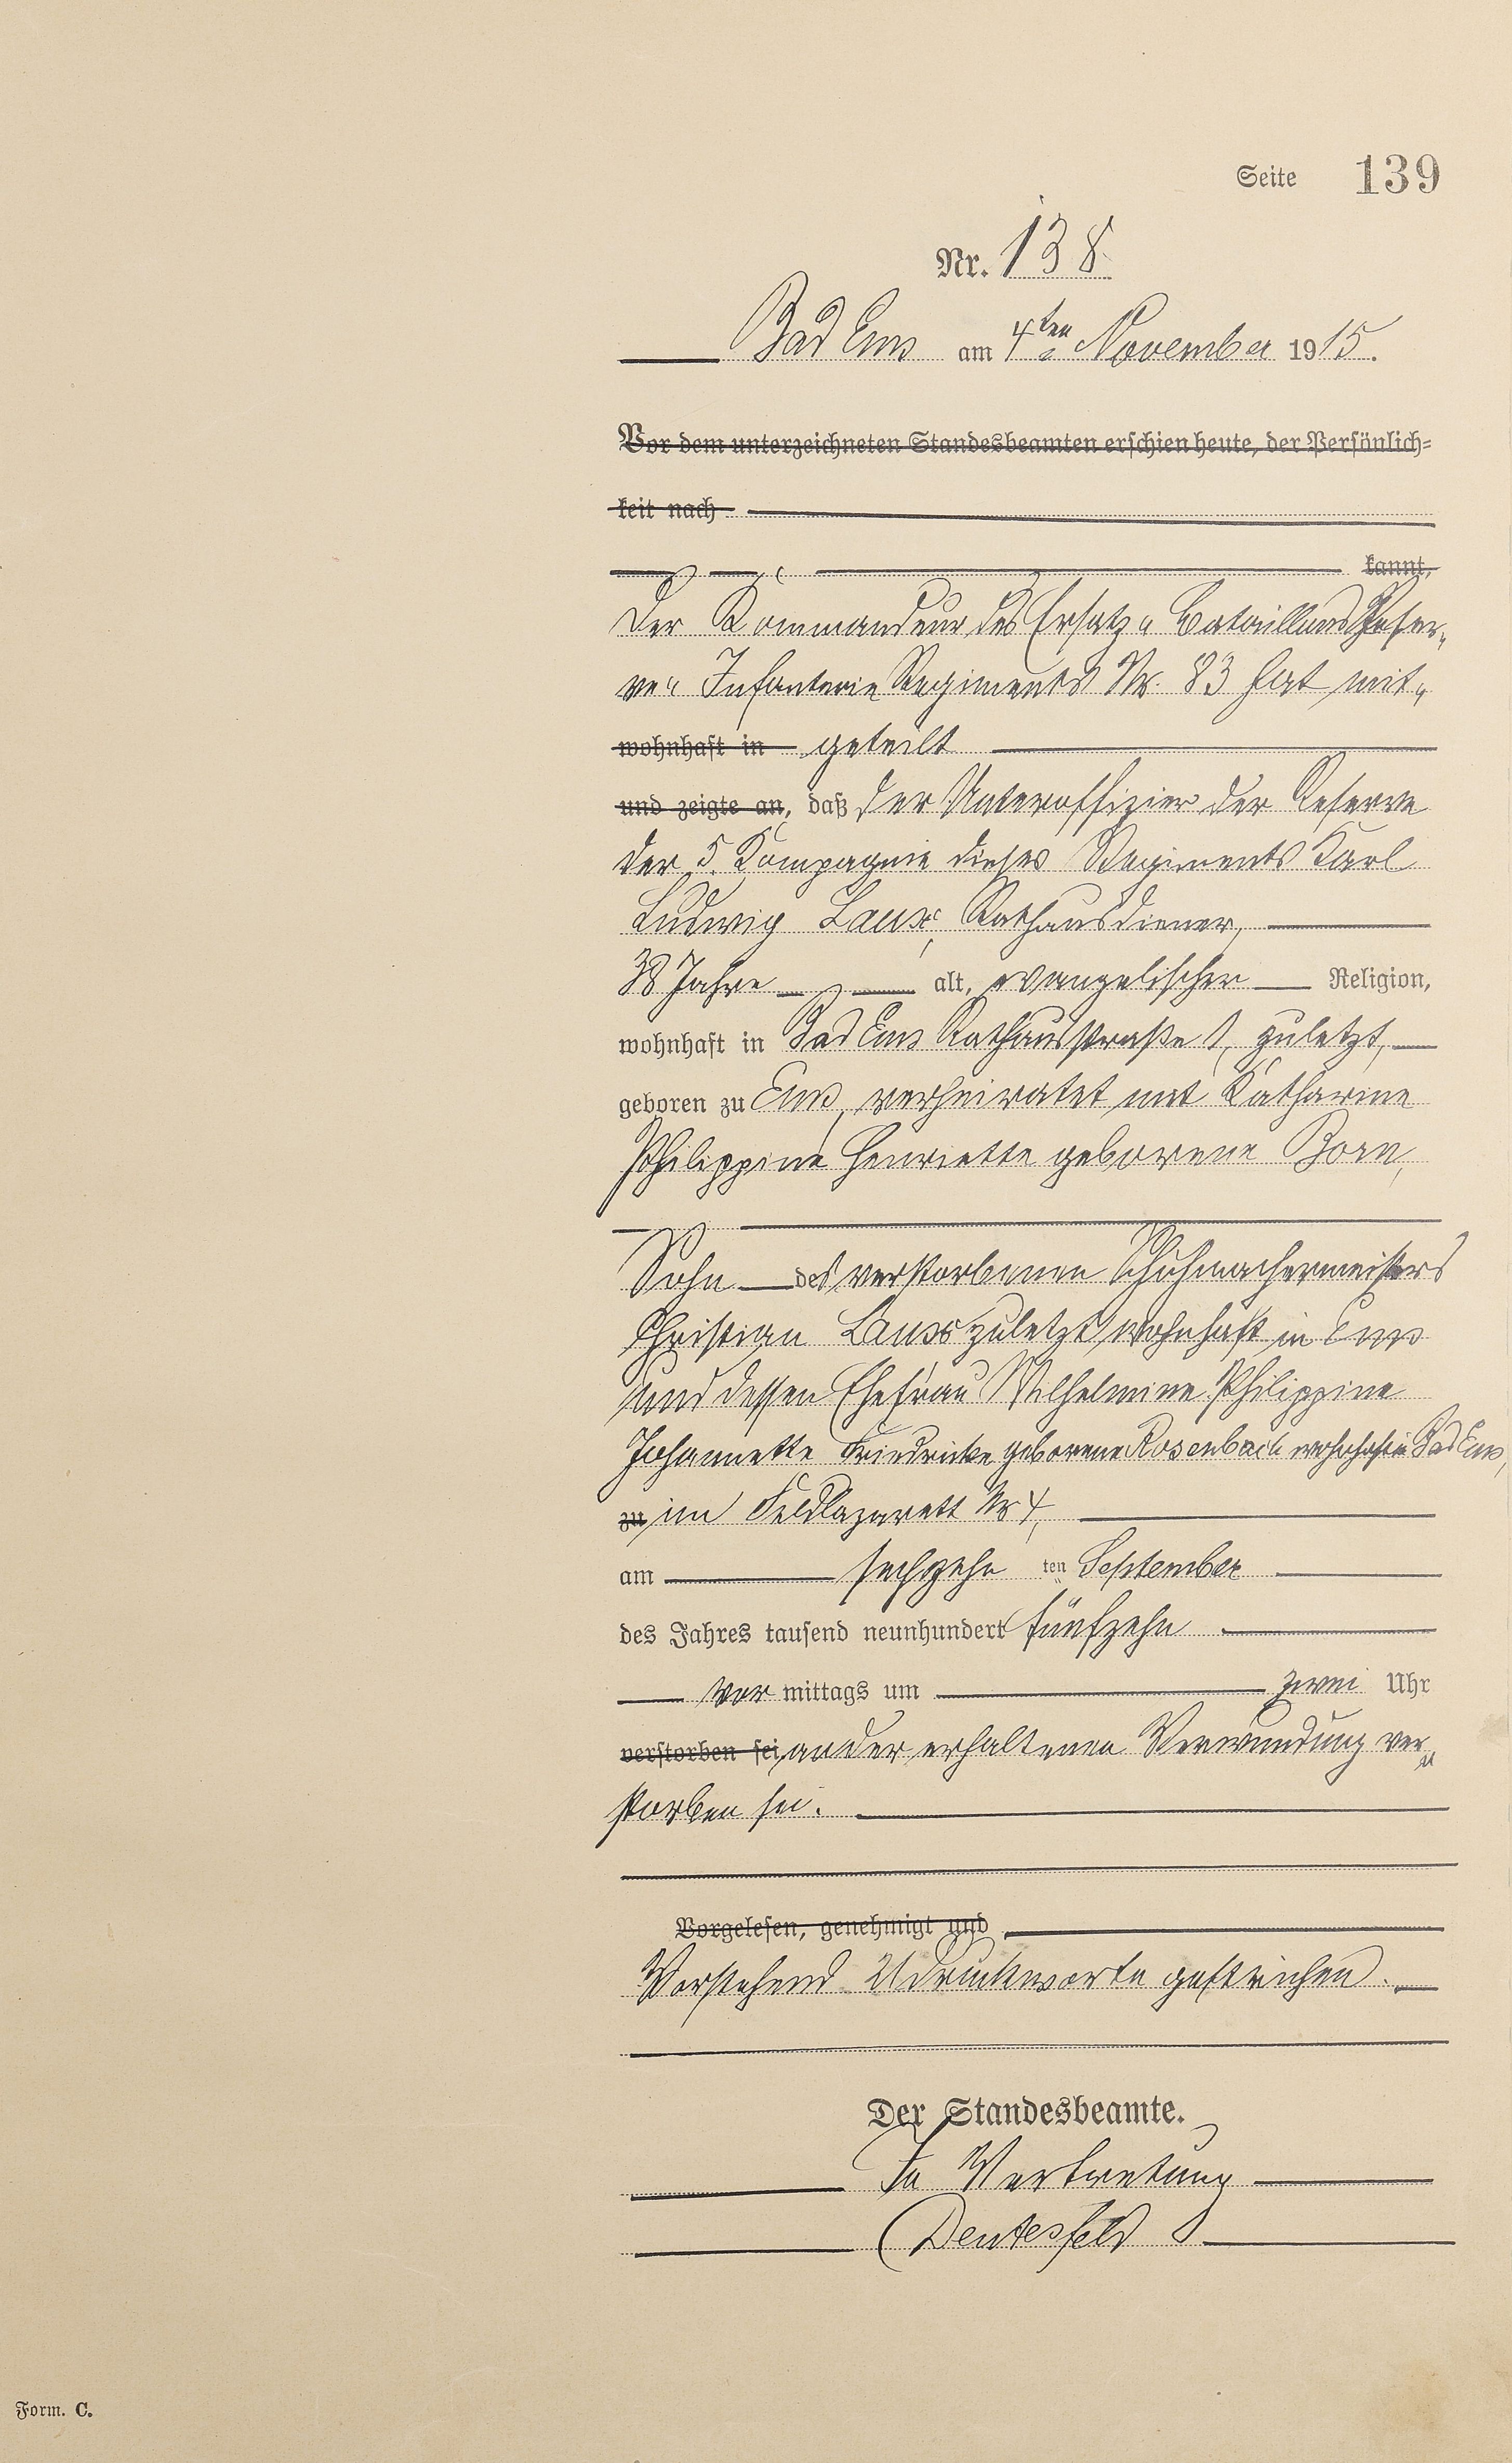 Seite 139
Nr. 138
Bad Ems am 4ten November 1915.
Vor dem unterzeichneten Standesbeamten erschien heute, der Persönlich-
keit nach
kannt,
Der Kommandeur des Ersatz-Bataillons Reser-
ve-Infanterie Regiments Nr. 83 hat mit-
wohnhaft in geteilt
und zeigte an, daß der Unteroffizier der Reserve
der 5. Kompagnie dieses Regiments Karl
Ludwig Laux, Rathausdiener,
38 Jahre alt, evangelischer Religion,
wohnhaft in Bad Ems Rathausstraße 1, zuletzt,
geboren zu Ems, verheiratet mit Katharine
Philippine Henriette geborene Born,
Sohn des verstorbenen Schuhmachermeisters
Christian Laux zuletzt wohnhaft in Ems
und dessen Ehefrau Wilhelmine Philippine
Johannette Friedricke geborene Rosenbach wohnhaft in Bad Ems,
zu im Feldlazarett Nr 4,
am sechzehn ten September
des Jahres tausend neunhundert fünfzehn
vor mittags um zwei Uhr
verstorben sei an der erhaltenen Verwundung ver-
storben sei.
Vorgelesen, genehmigt und
Vorstehend 21 Druckworte gestrichen.
Der Standesbeamte.
In Vertretung
Deutesfeld
Form. C.